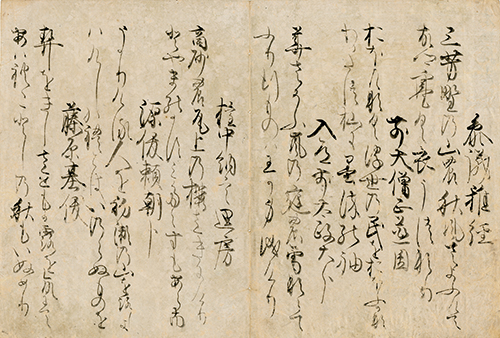 参議雅経
三芳野乃山の秋風さよふけて
ふる里さむく衣うつなり
前大僧正慈円
おほけなく浮世の民におほふ哉
わかたつ杣に墨染の袖
入道前太政大臣
花さそふ嵐の庭の雪ならて
ふり行ものは我身なりけり
権中納言匡房
高砂の尾上の桜さきにけり
とやまの霞たゝすもあらなん
源俊頼朝臣
うかりける人を初瀬の山おろしよ
はけしかれとはいのらぬ物を
藤原基俊
契をきしさせもか露を命にて
あはれことしの秋もいぬめり